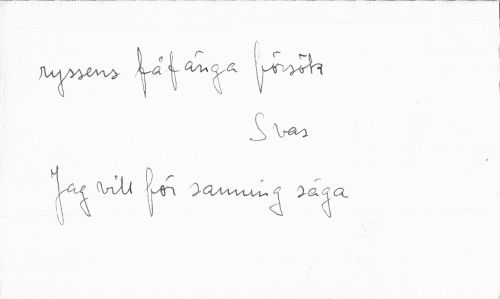 ryssens fåfänga försök
Svas
Jag vill för sanning säga